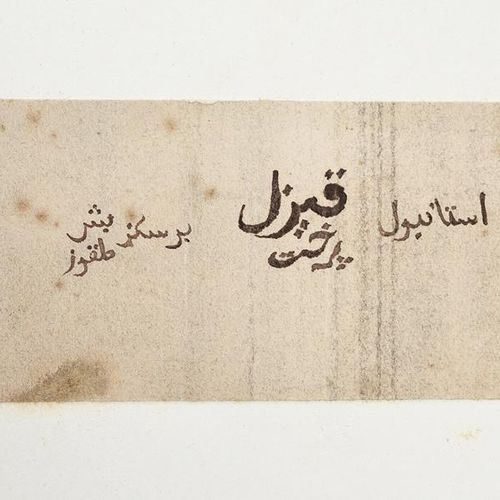 استانبول
قيزل
پرخت
بر سكز
طقوز